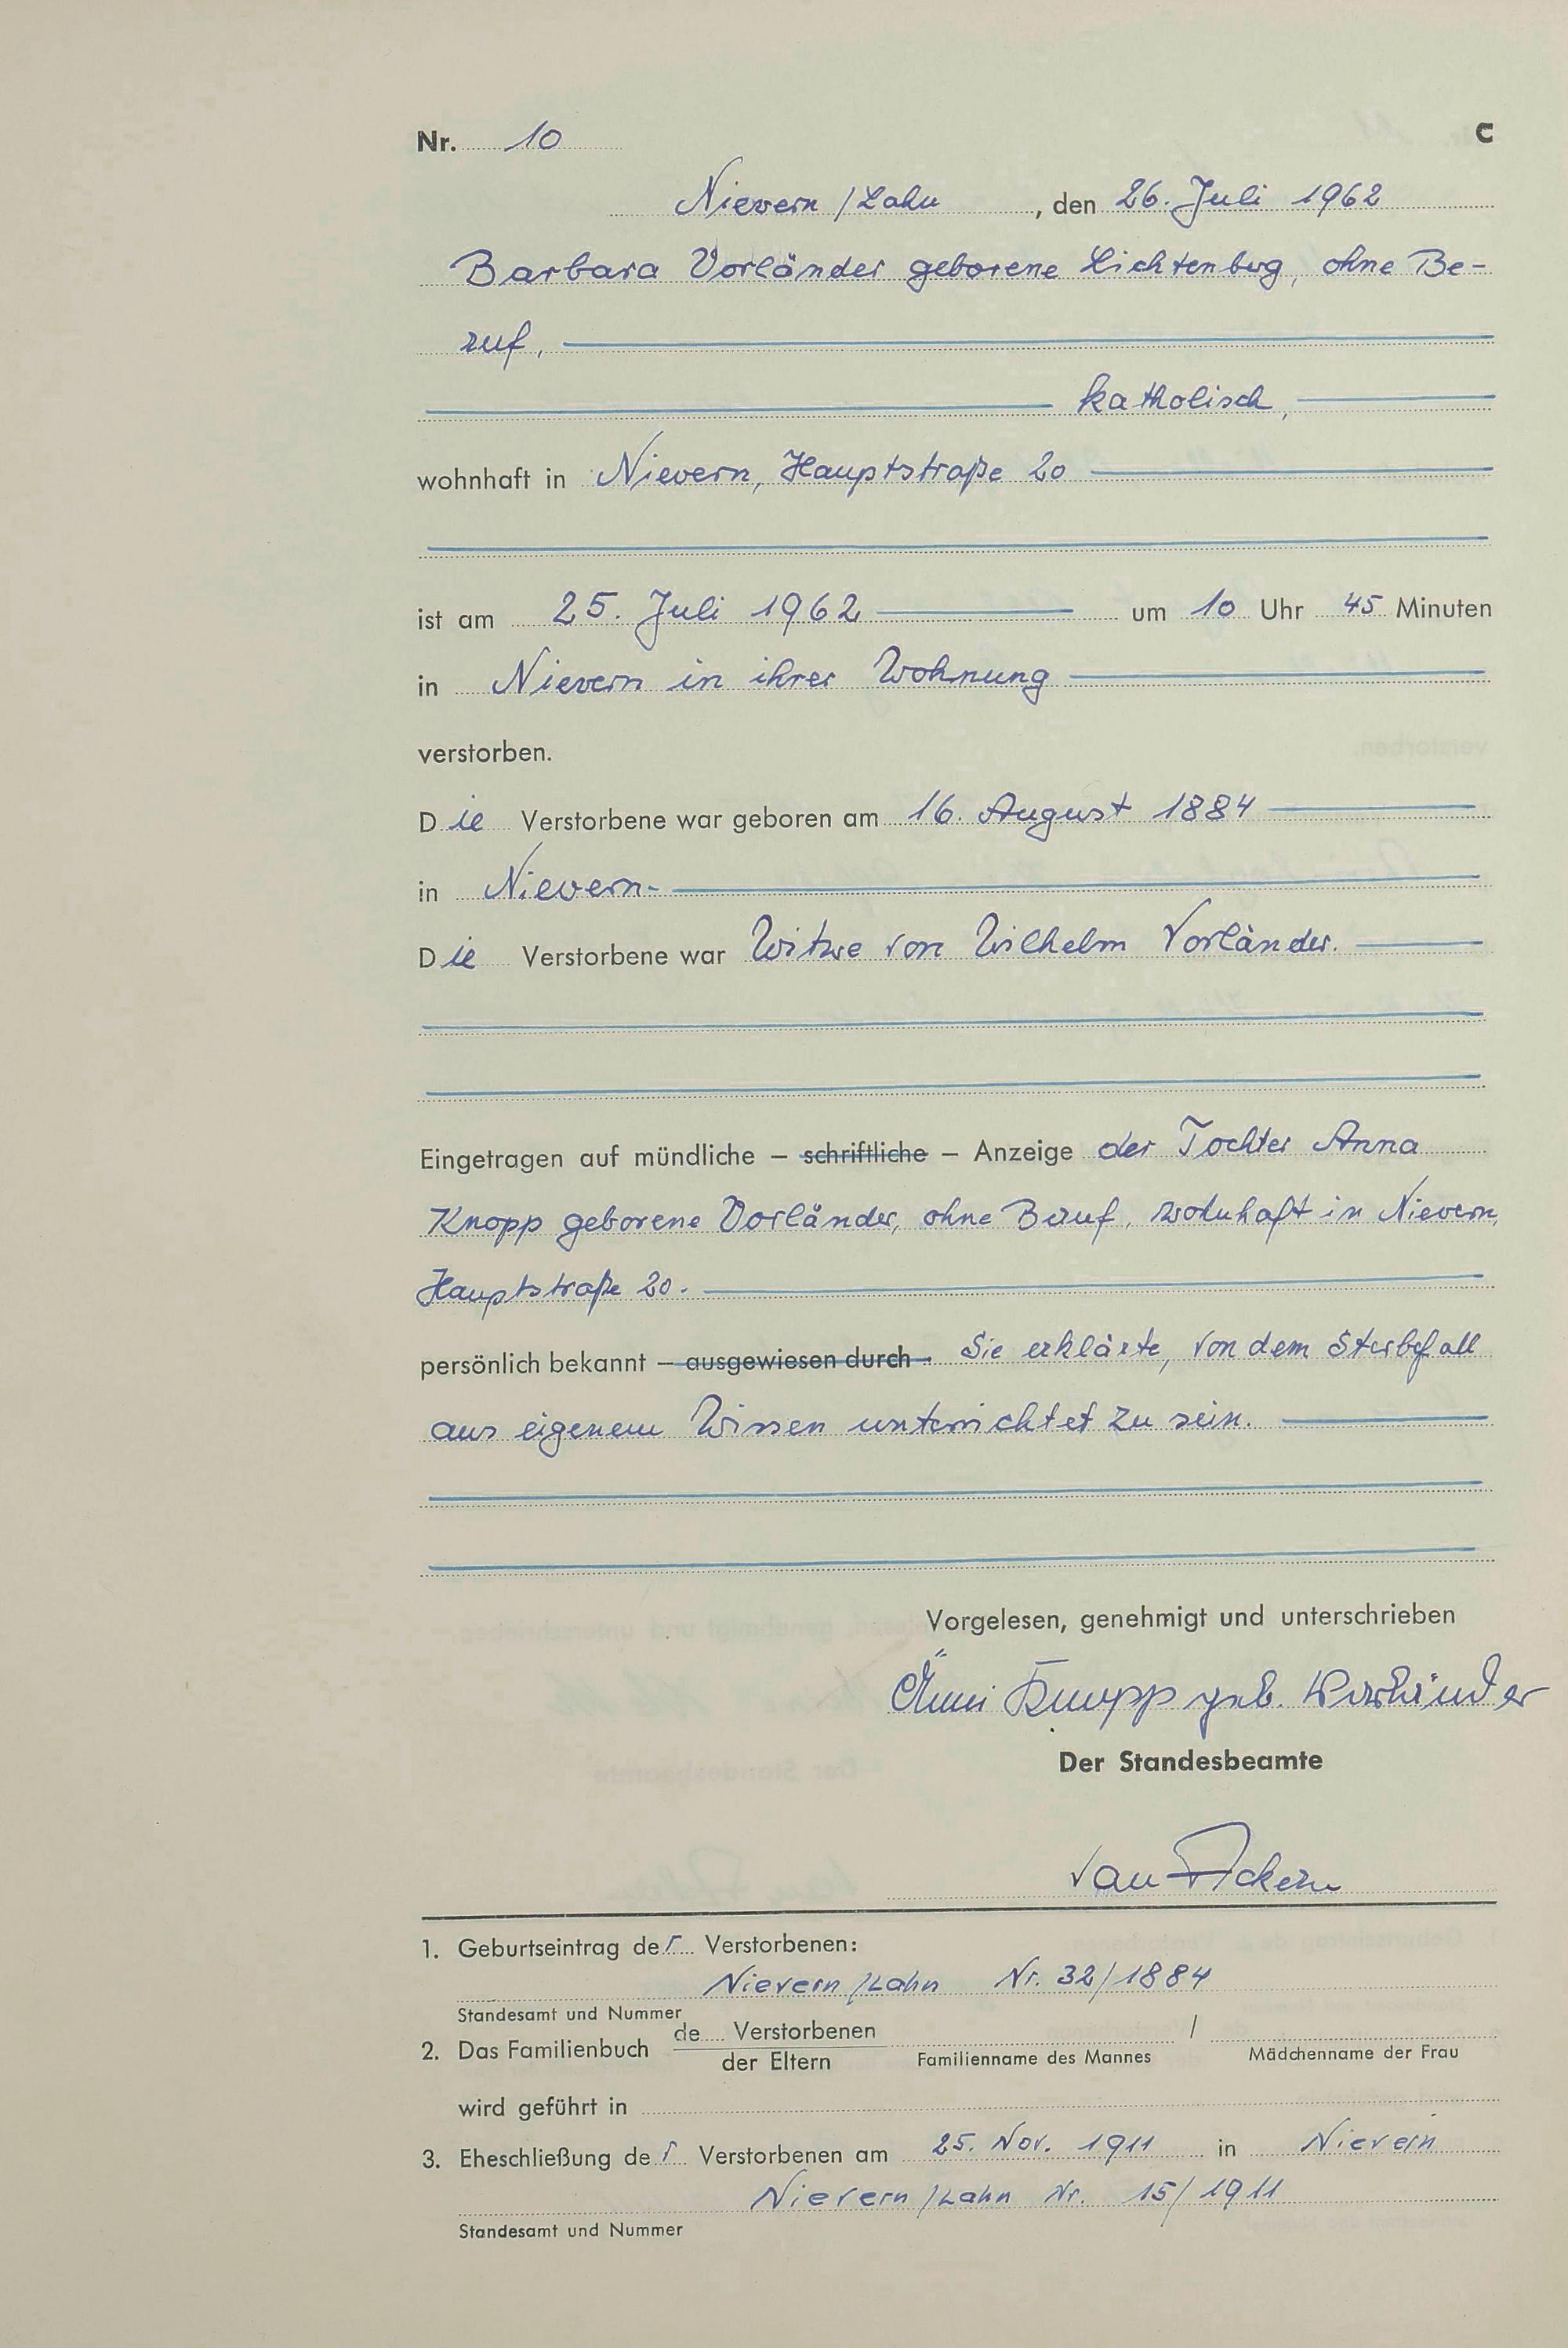 Nr. 10 C
Nievern / Lahn, den 26. Juli 1962
Barbara Vorländer geborene Lichtenberg, ohne Be-
ruf,
katholisch,
wohnhaft in Nievern, Hauptstraße 20
ist am 25. Juli 1962 um 10 Uhr 45 Minuten
in Nievern in ihrer Wohnung
verstorben.
Die Verstorbene war geboren am 16. August 1884
in Nievern.
Die Verstorbene war Witwe von Wilhelm Vorländer.
Eingetragen auf mündliche – schriftliche – Anzeige der Tochter Anna
Knopp geborene Vorländer, ohne Beruf, wohnhaft in Nievern,
Hauptstraße 20.
persönlich bekannt – ausgewiesen durch – Sie erklärte, von dem Sterbefall
aus eigenem Wissen unterrichtet zu sein.
Vorgelesen, genehmigt und unterschrieben
Änni Knopp geb. Vorländer
Der Standesbeamte
van Ackern
1. Geburtseintrag der Verstorbenen:
Nievern/Lahn Nr. 32/1884
Standesamt und Nummer
de Verstorbenen /
2. Das Familienbuch
der Eltern Familienname des Mannes Mädchenname der Frau
wird geführt in
3. Eheschließung der Verstorbenen am 25. Nov. 1911 in Nievern
Nievern/Lahn Nr. 15/1911
Standesamt und Nummer